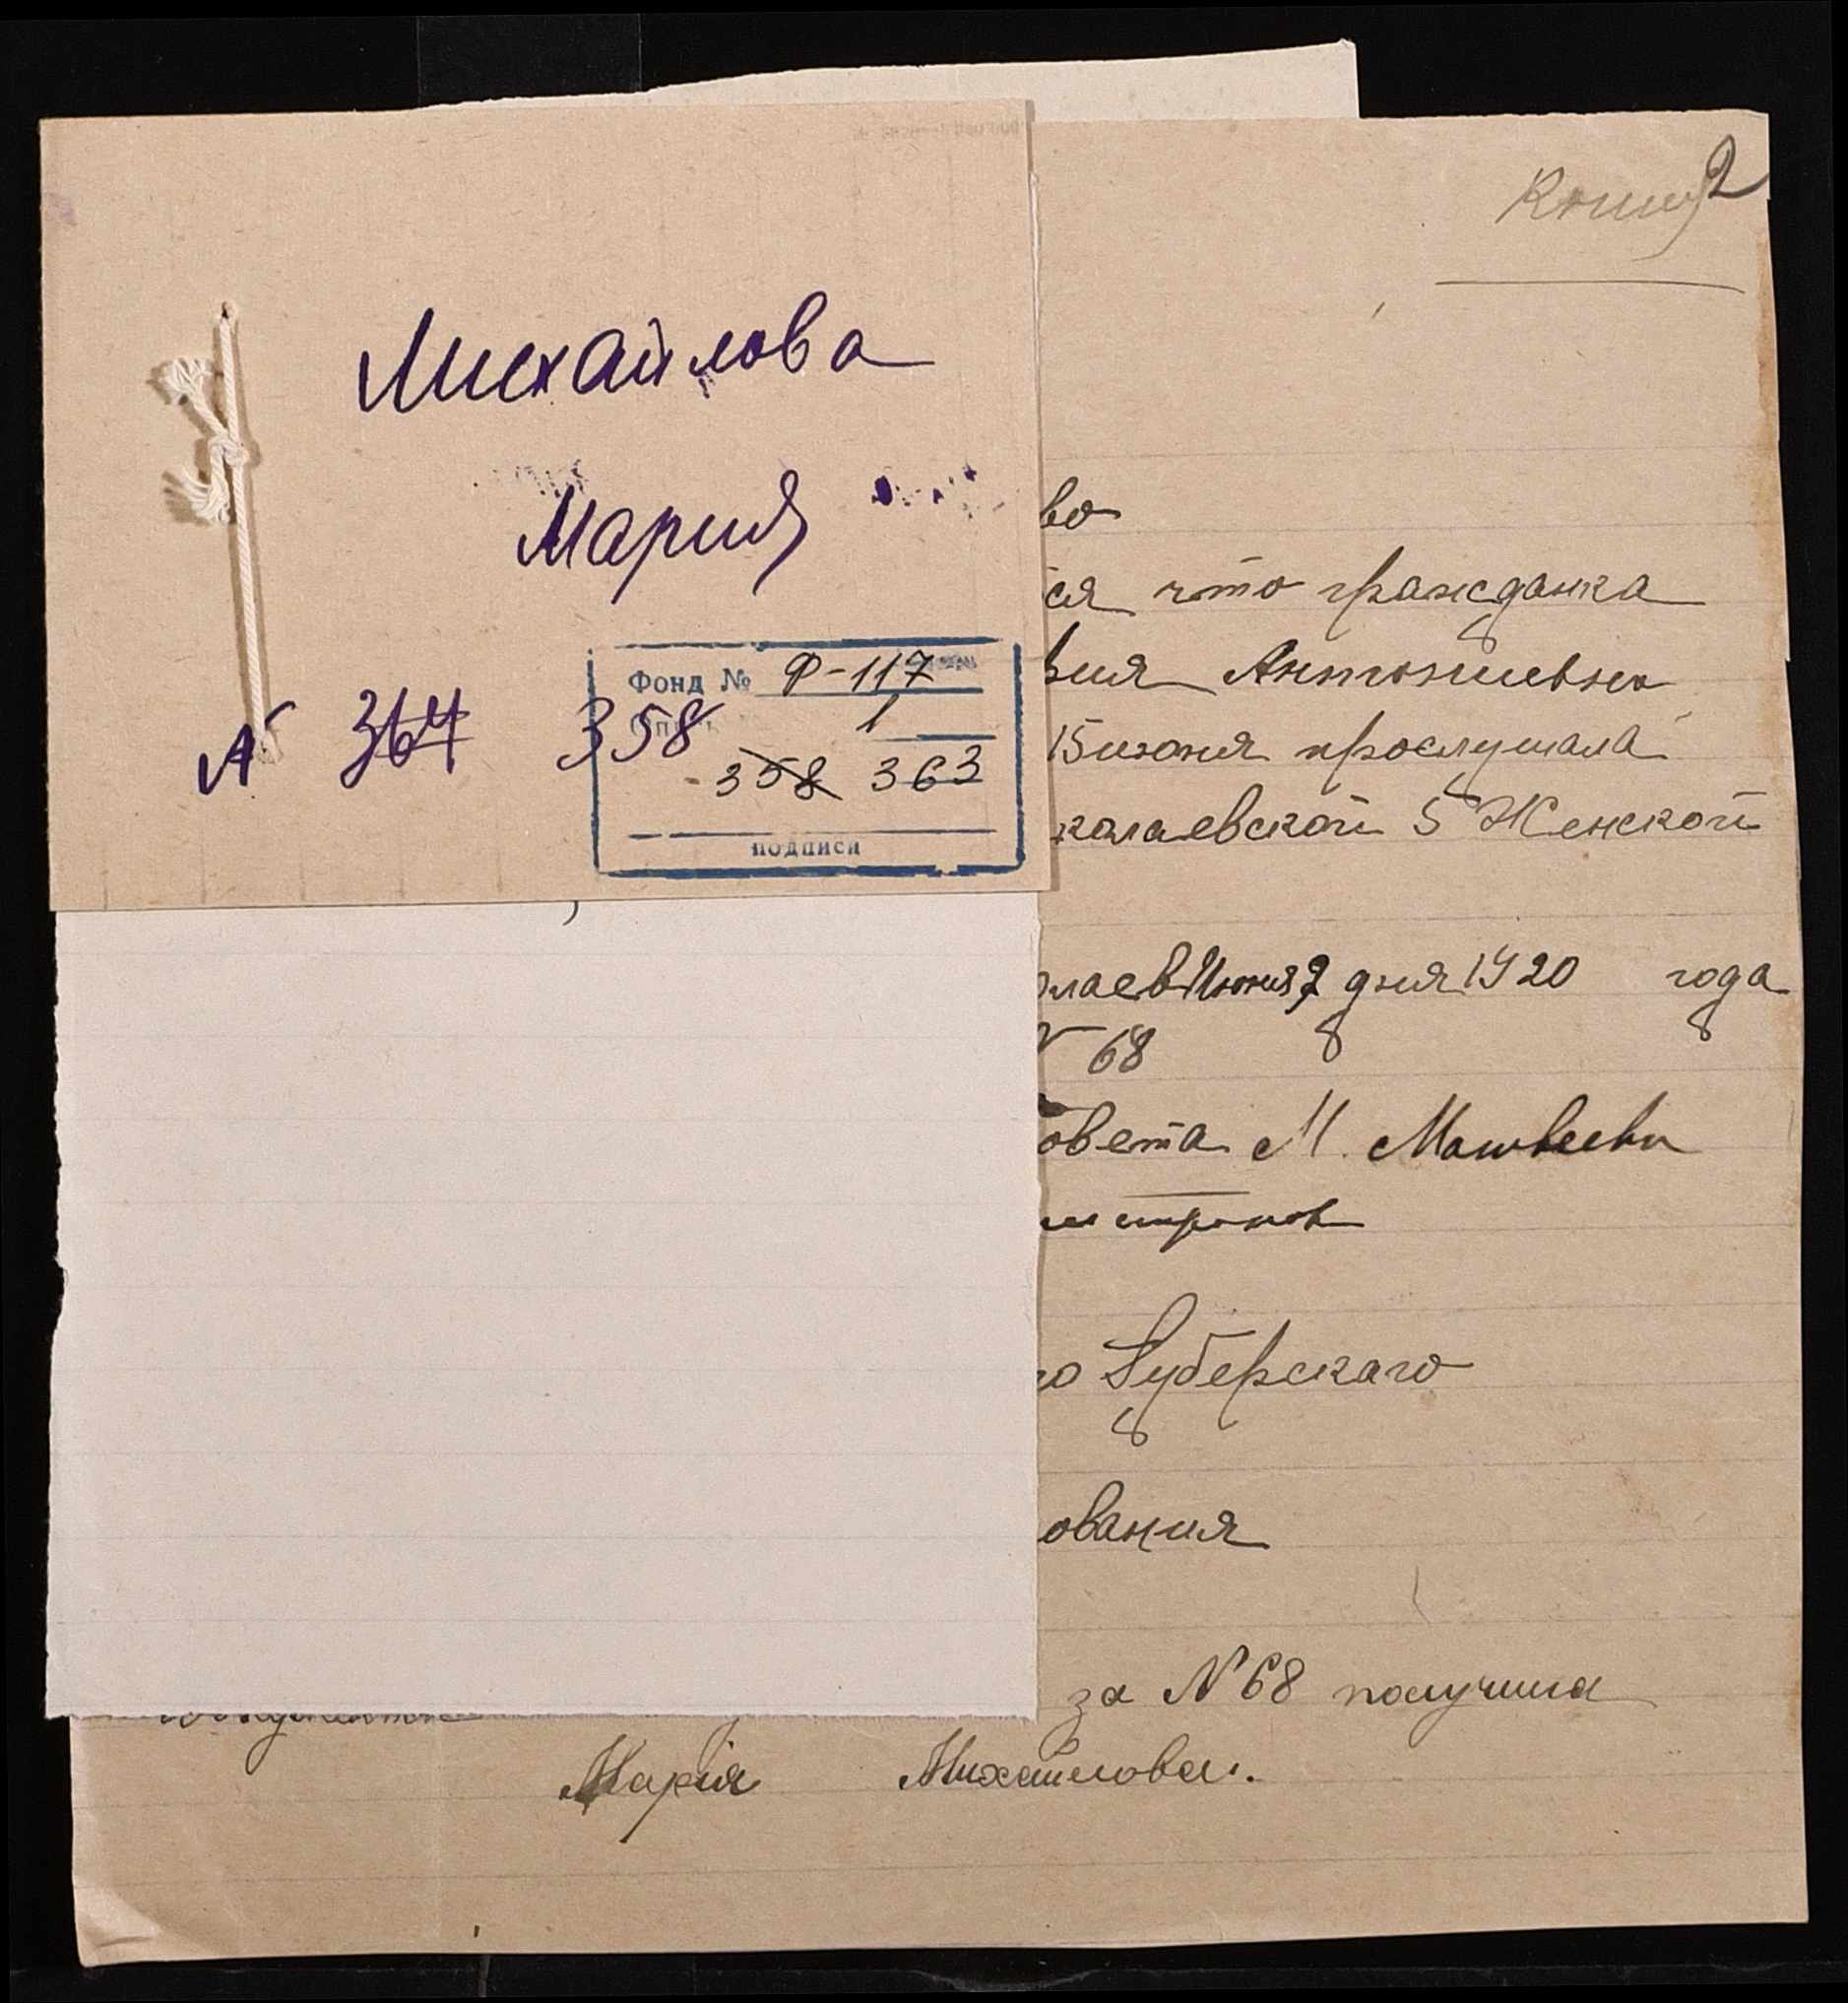 Михайлова
Мария
№ 364 358
Фонд № Ф-117
1
358 363
подписи
Копия 2
во
ся что гражданка
Антониевна
15 июня прослушала
колаевской 5 Женской
олаев Июня 2 дня 1920 года
№ 68
овета М. Матвеева
о Губерскаго
ования
за № 68 получила
Марія Михайлова.